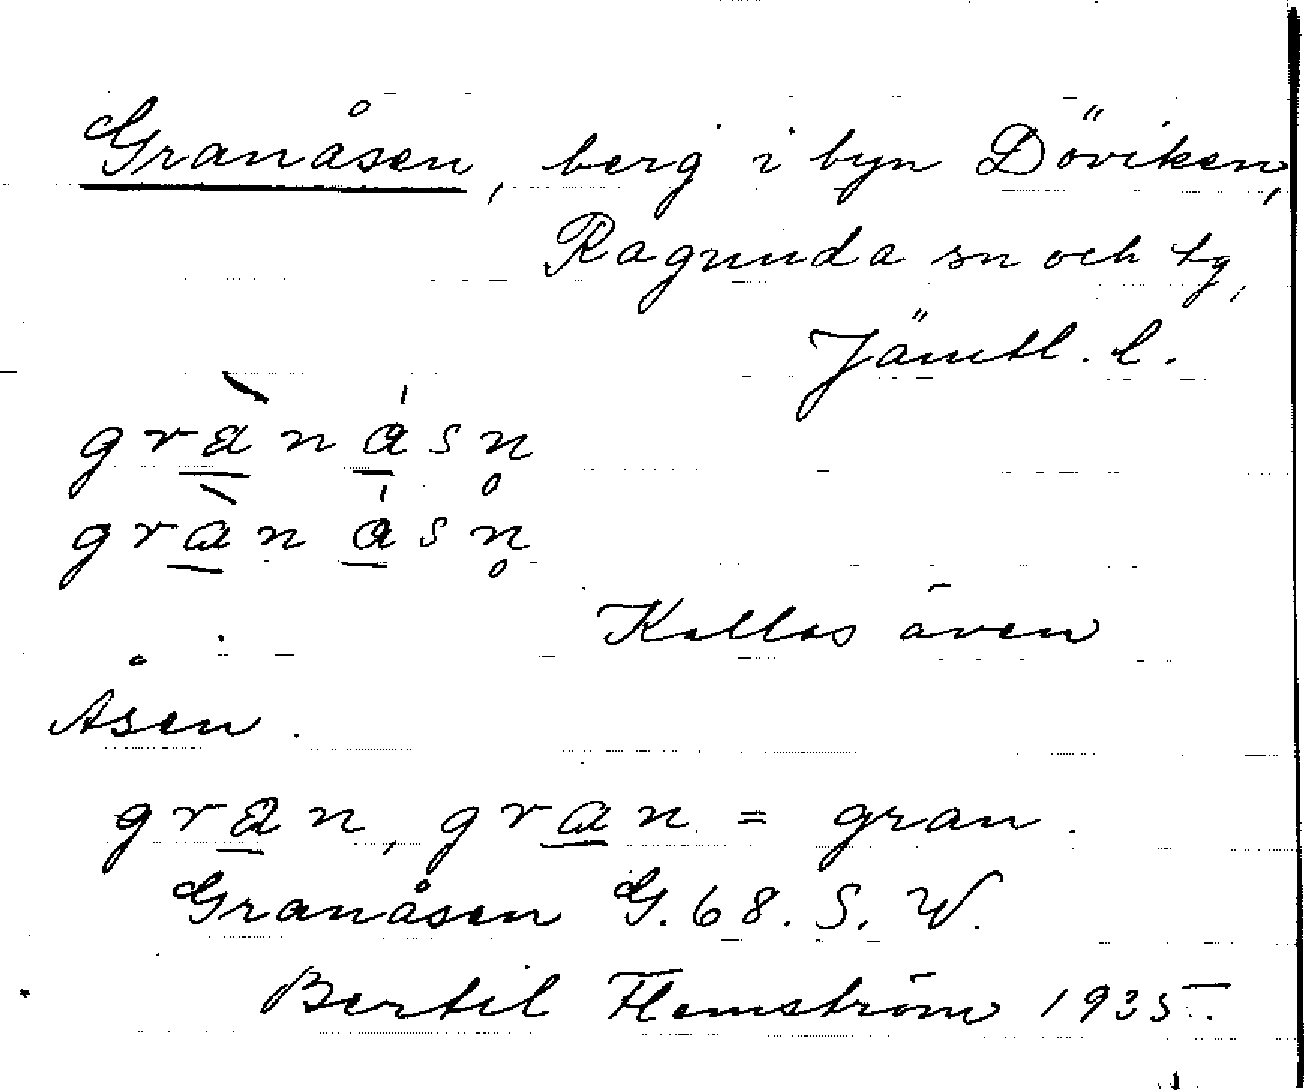 Granåsen, berg i byn Döviken,
Ragunda sn och tg,
Jämtl. l.
grànásn̥
gràn ásn̥
Kallas även
Åsen.
gran, gran = gran.
Granåsen G. 68. S. W.
Bertil Flemström 1935.